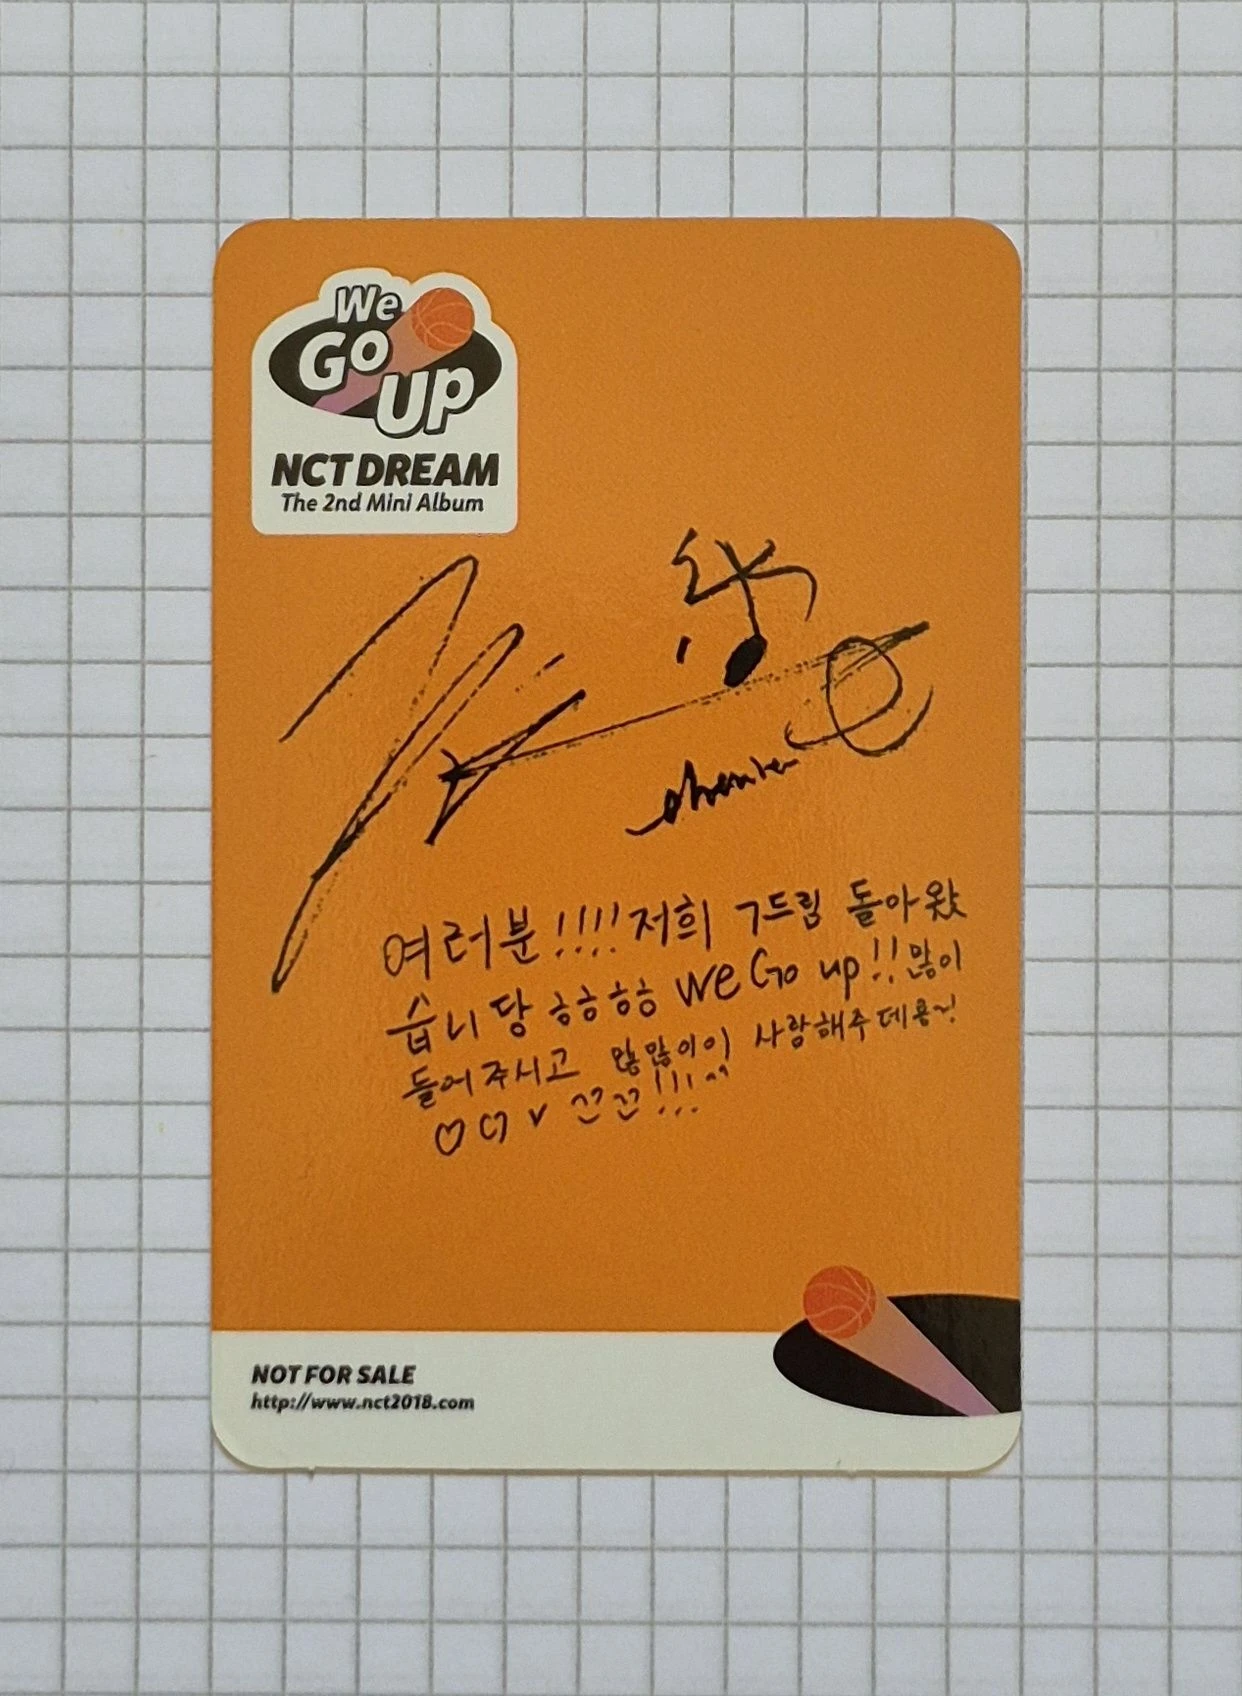 We
Go
Up
NCT DREAM
The 2nd Mini Album
여러분!!!! 저희 7드림 돌아왔
습니당 ㅎㅎㅎㅎ We Go up!! 많이
들어주시고 많많이이 사랑해주데용~!
♡♡v ㄲㄲ!!! ^^
NOT FOR SALE
http://www.nct2018.com